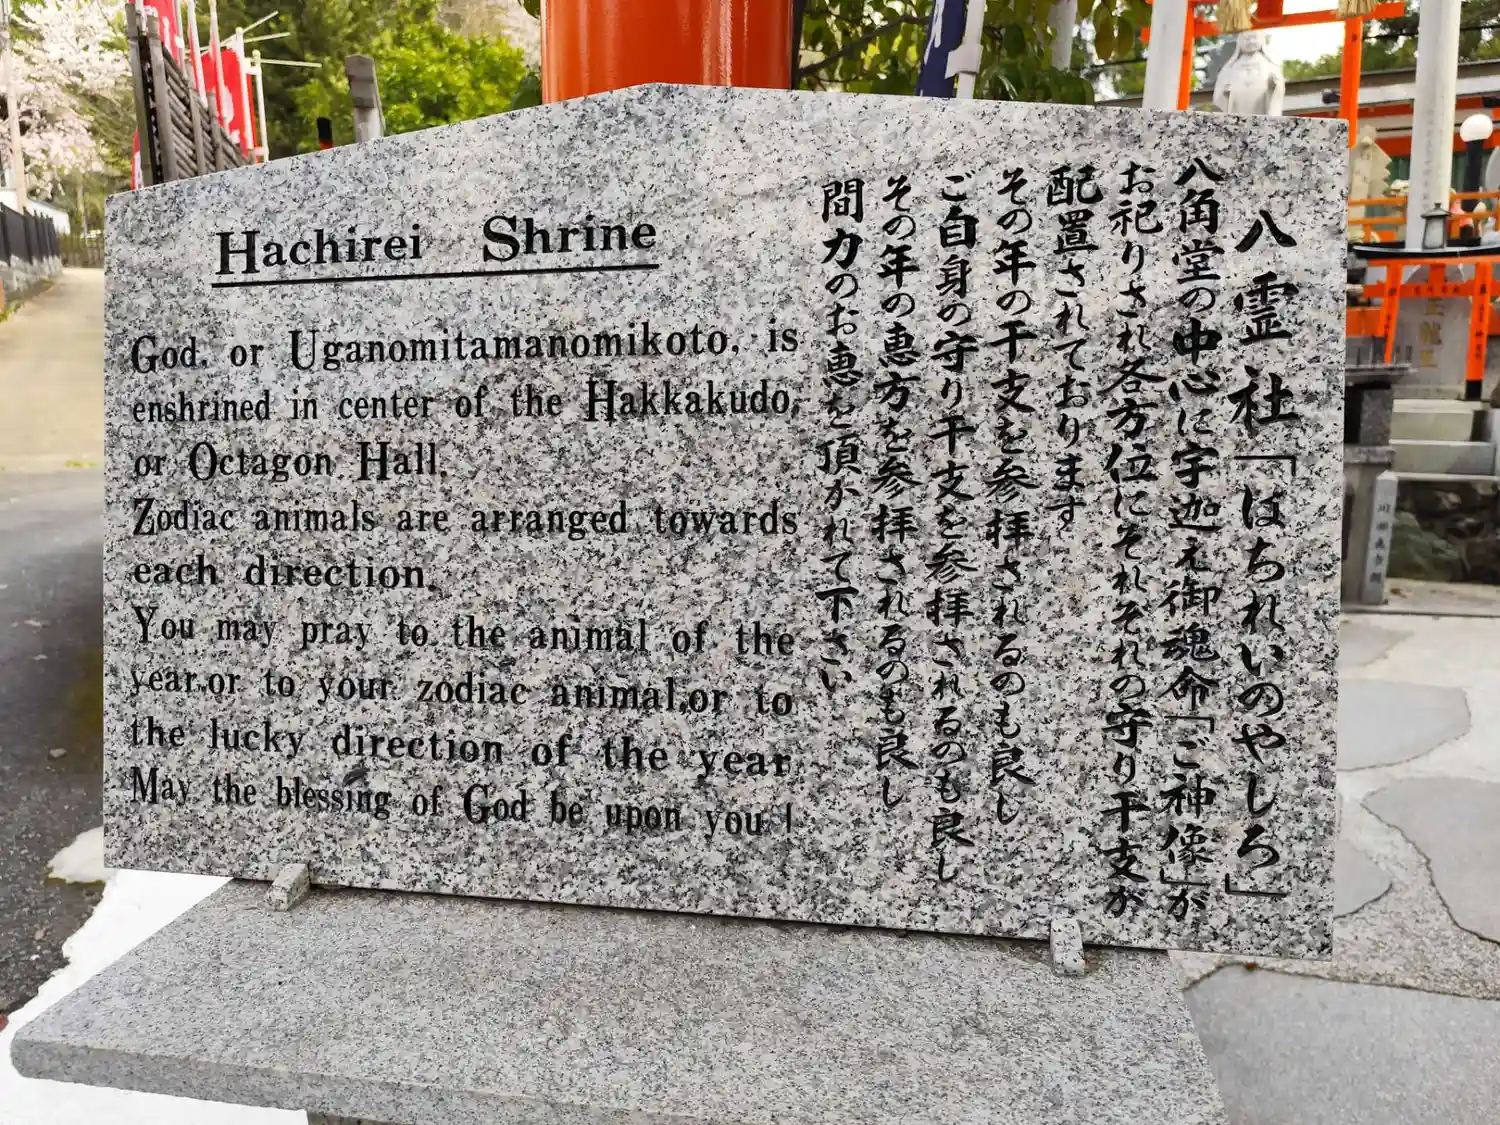 Hachirei Shrine
God, or Uganomitamanomikoto, is
enshrined in center of the Hakkakudo,
or Octagon Hall.
Zodiac animals are arranged towards
each direction.
You may pray to the animal of the
year,or to your zodiac animal,or to
the lucky direction of the year
May the blessing of God be upon you!
八霊社「はちれいのやしろ」
八角堂の中心に宇迦え御魂命「ご神像」が
お祀りされ各方位にそれぞれの守り干支が
配置されております
その年の干支を参拝されるのも良し
ご自身の守り干支を参拝されるのも良し
その年の恵方を参拝されるのも良し
間力のお恵を頂かれて下さい